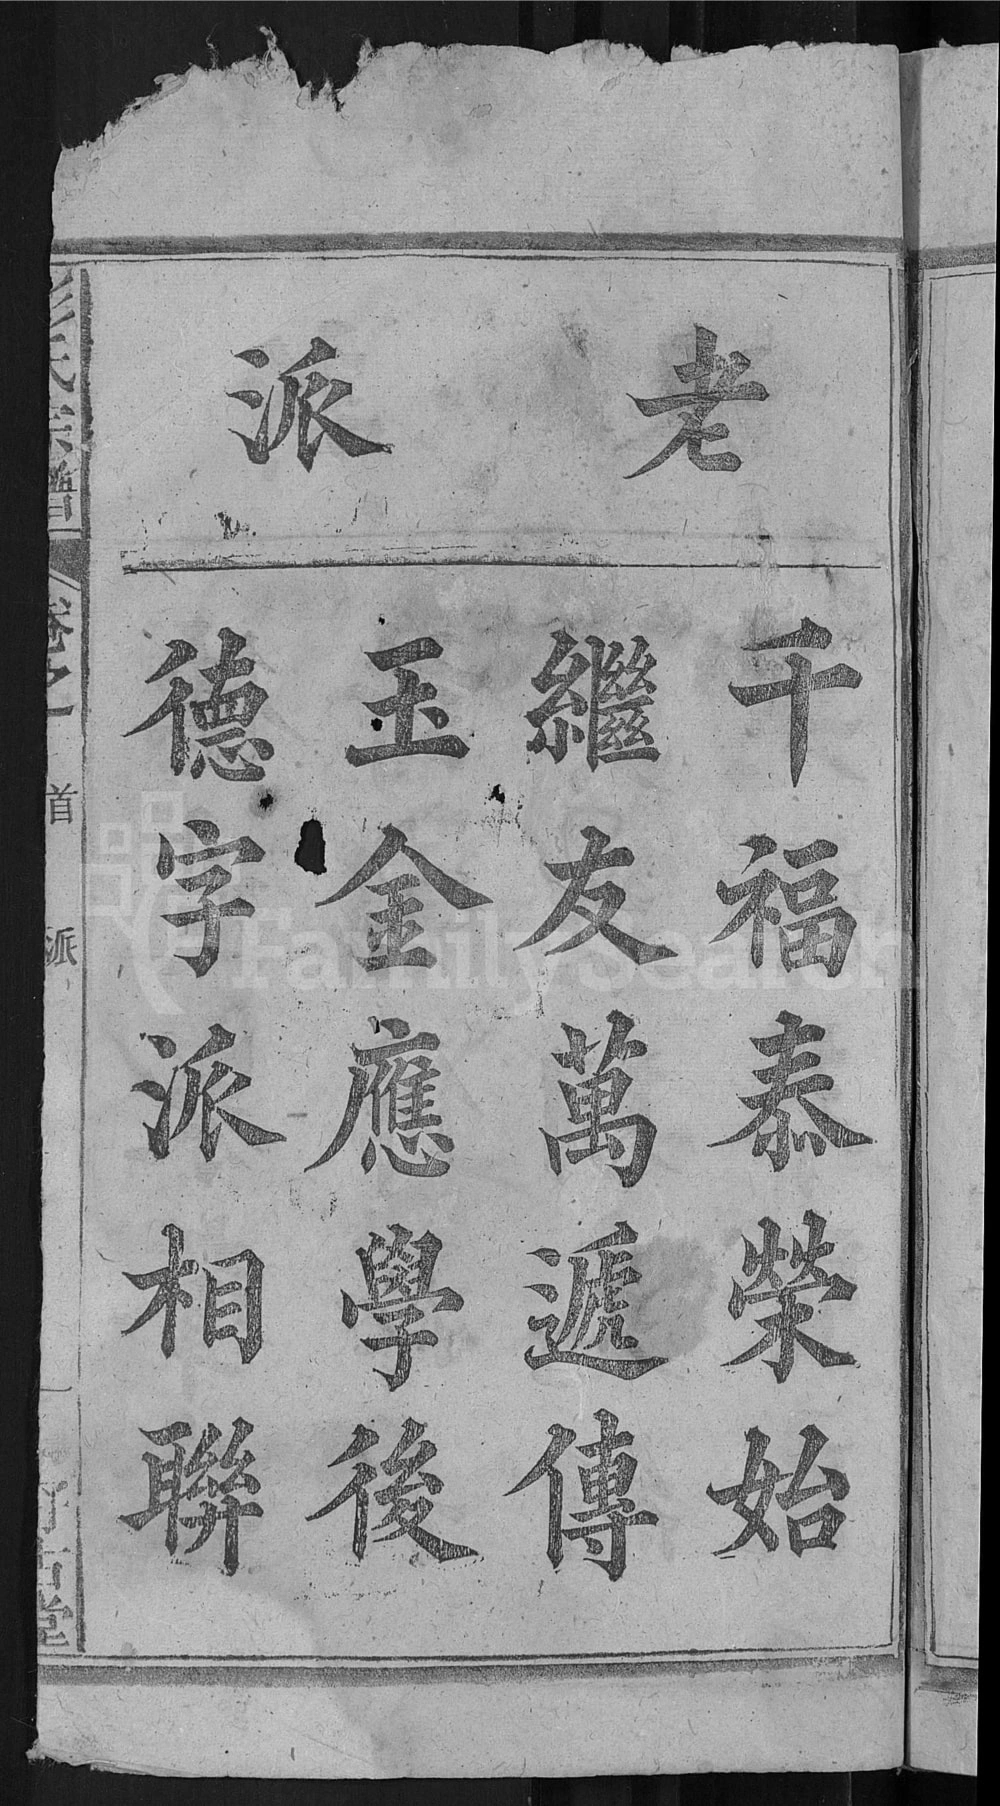 老派
千福泰榮始
繼友萬遞傳
玉金應學後
德字派相聯
氏宗譜
卷之一
首
派
堂
FamilySearch